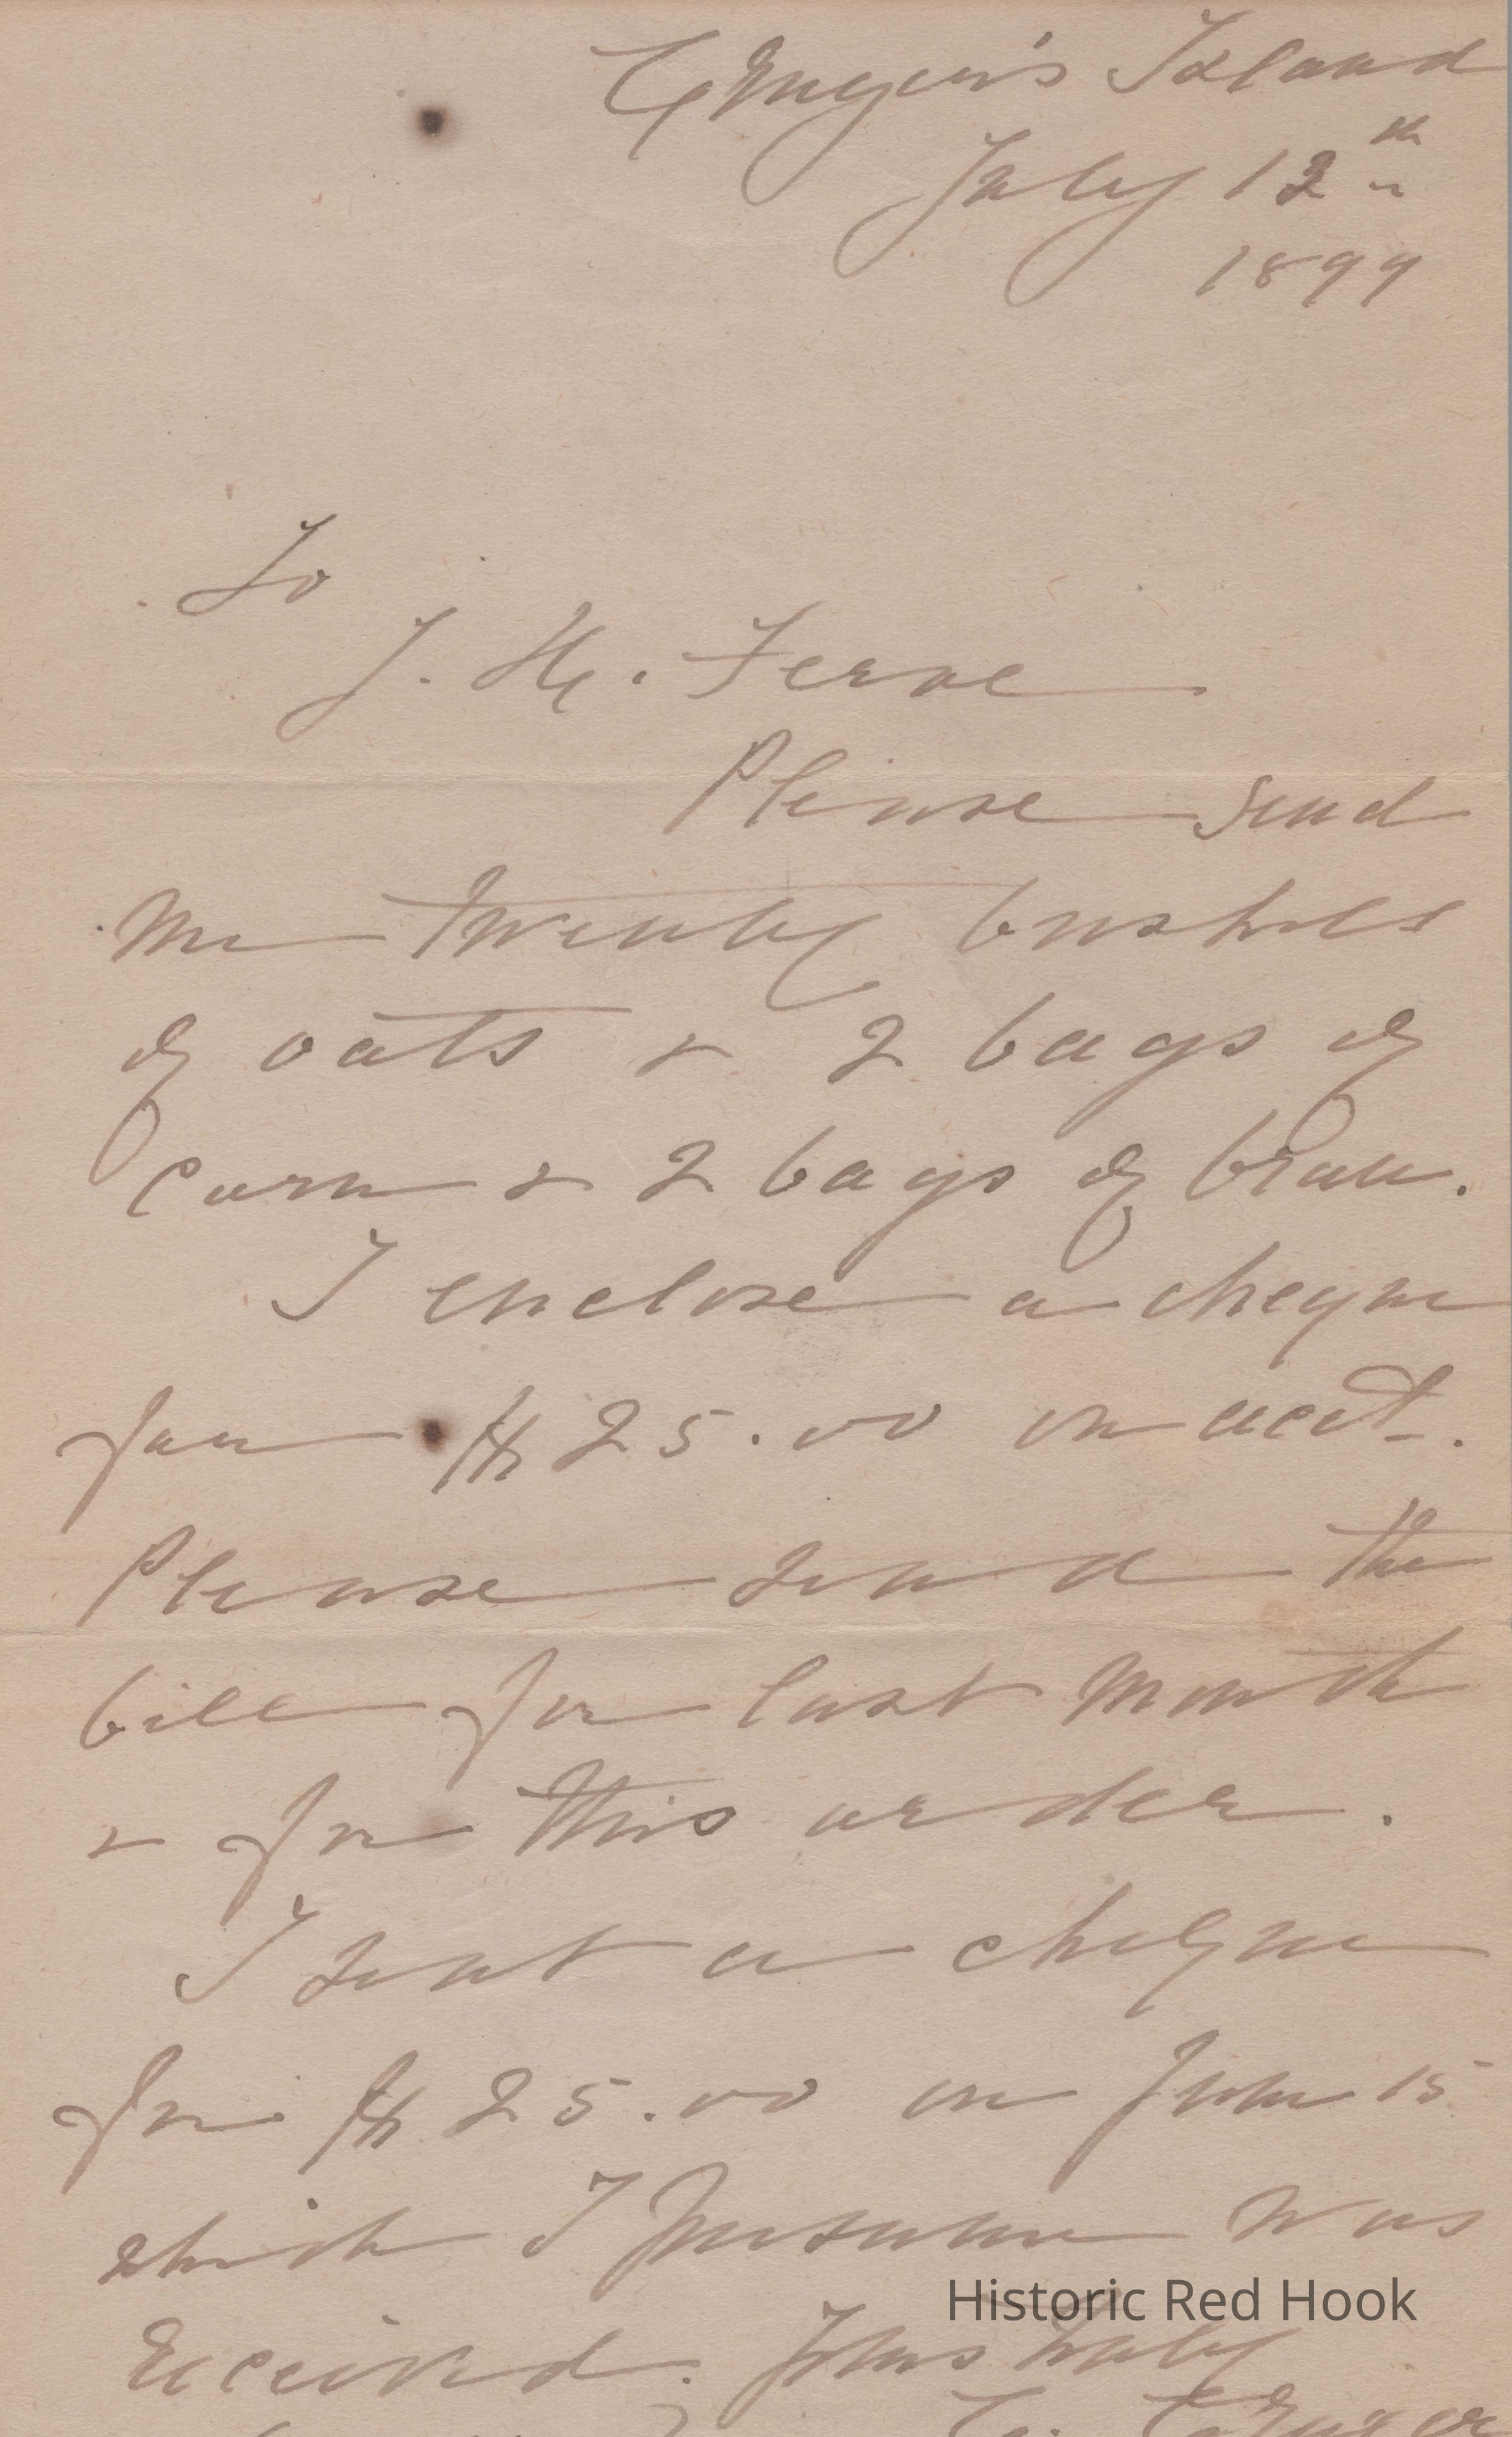 Cruger's Island
July 12th
1899
To
J. H. Feroe
Please send
me twenty bushels
of oats & 2 bags of
corn & 2 bags of bran.
I enclose a cheque
for $25.00 on acct.
Please send the
bill for last month
& for this order.
I sent a cheque
for $25.00 on June 15
which I presume was
Historic Red Hook
received. Yours truly
C. Cruger